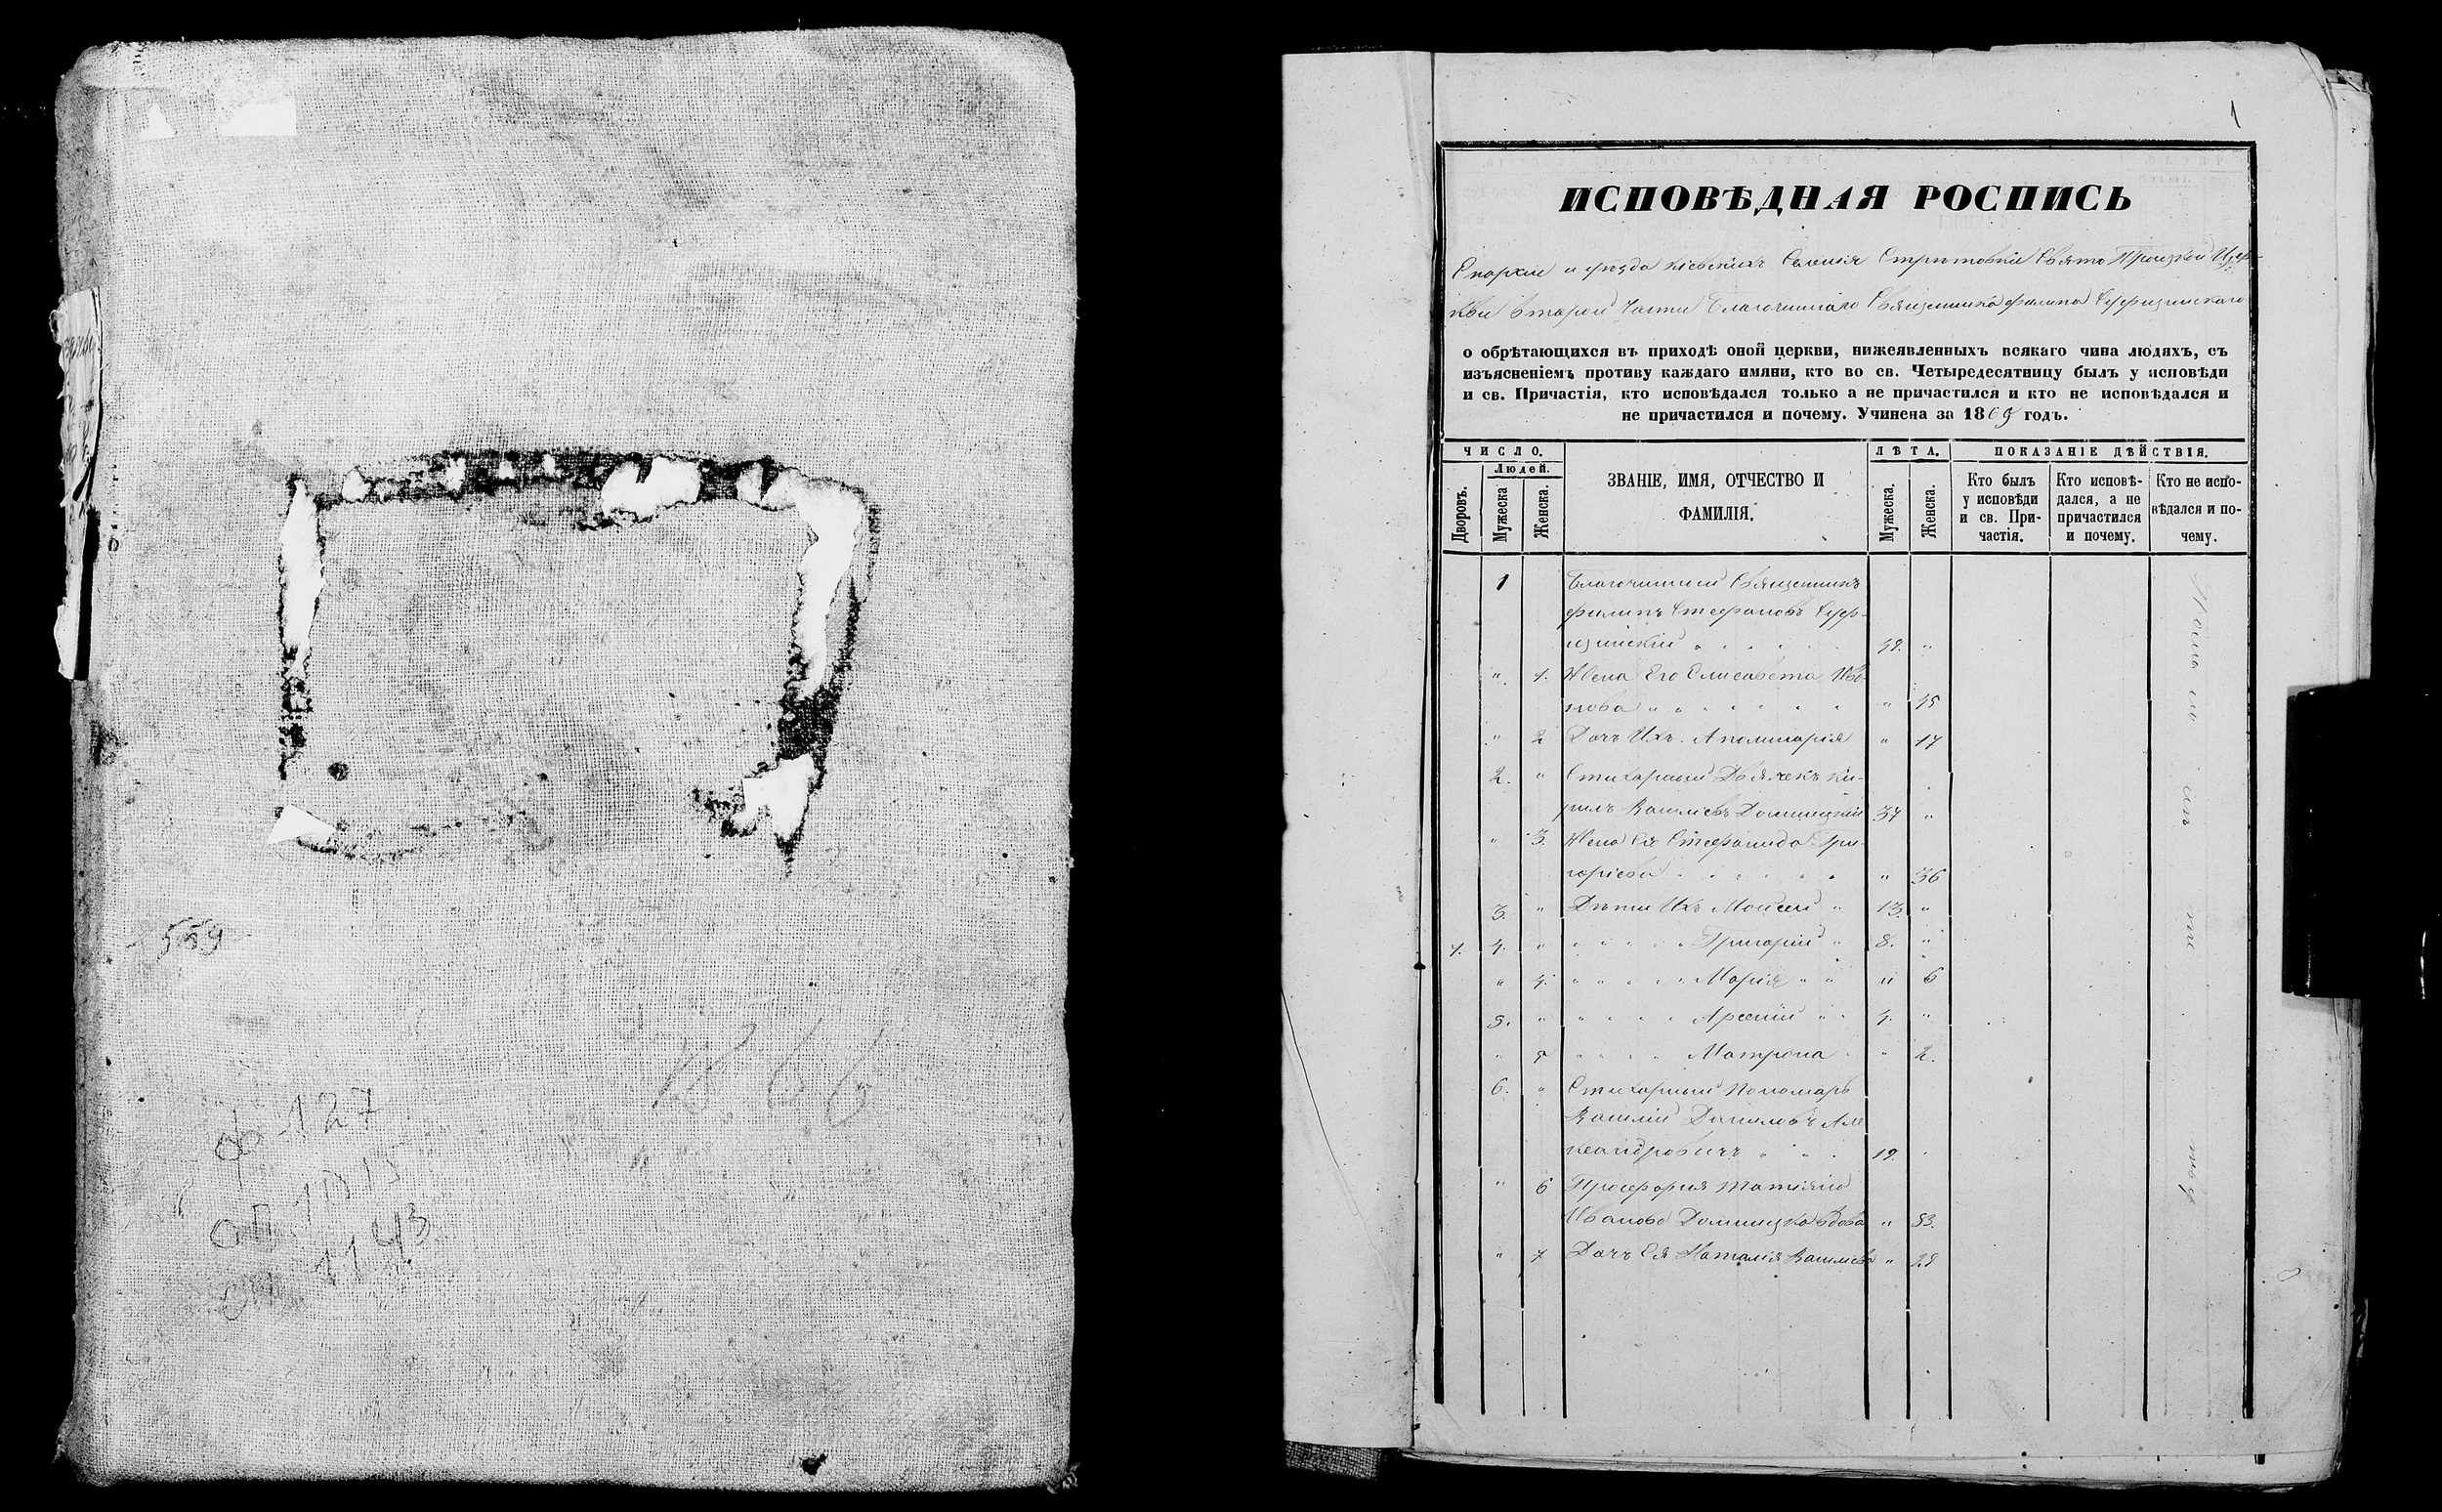 559
1866
ф 127
оп 1015
1143
1
ИСПОВѢДНАЯ РОСПИСЬ
Епархіи и уѣзда Кіевскихъ Селенія Стрѣтовки Свято Троицкой Цер-
кви второй части Благочиннаго Священника Филипа
о обрѣтающихся въ приходѣ оной церкви, нижеявленныхъ всякаго чина людяхъ, съ
изъясненіемъ противу каждаго имяни, кто во св. Четыредесятницу былъ у исповѣди
и св. Причастія, кто исповѣдался только а не причастился и кто не исповѣдался и
не причастился и почему. Учинена за 186 годъ.
ЧИСЛО. ЛѢТА. ПОКАЗАНІЕ ДѢЙСТВІЯ.
Людей.
Дворовъ. Мужеска Женска. ЗВАНІЕ, ИМЯ, ОТЧЕСТВО И ФАМИЛІЯ. Мужеска. Женска. Кто былъ у исповѣди и св. Причастія. Кто исповѣдался, а не причастился и почему. Кто не исповѣдался и почему.
1 Благочинный Священникъ
Филипъ Стефановъ
" 1. Жена Его Елисавета Ива-
нова " 45
" 2 Дочь Ихъ Аполинарія " 17
2. " Стихарный Дьячекъ Ки-
рилъ Васильевъ Домницкій 37 "
" 3. Жена Его Стефанида Гри-
горіева " 36
3. " Дѣти Ихъ Моисей " 13 "
1. 4. " Григорій " 8. "
" 4. Марія " " 6
5. " Арсеній " 4. "
" 5 Матрона " 2.
6. " Стихарный Пономарь
Василій Даниловъ Але-
ксандровичъ 19.
" 6 Просфорня Татіяна
Иванова Домницка вдова " 53.
" 7 Дочь Ея Наталія Васильева " 28